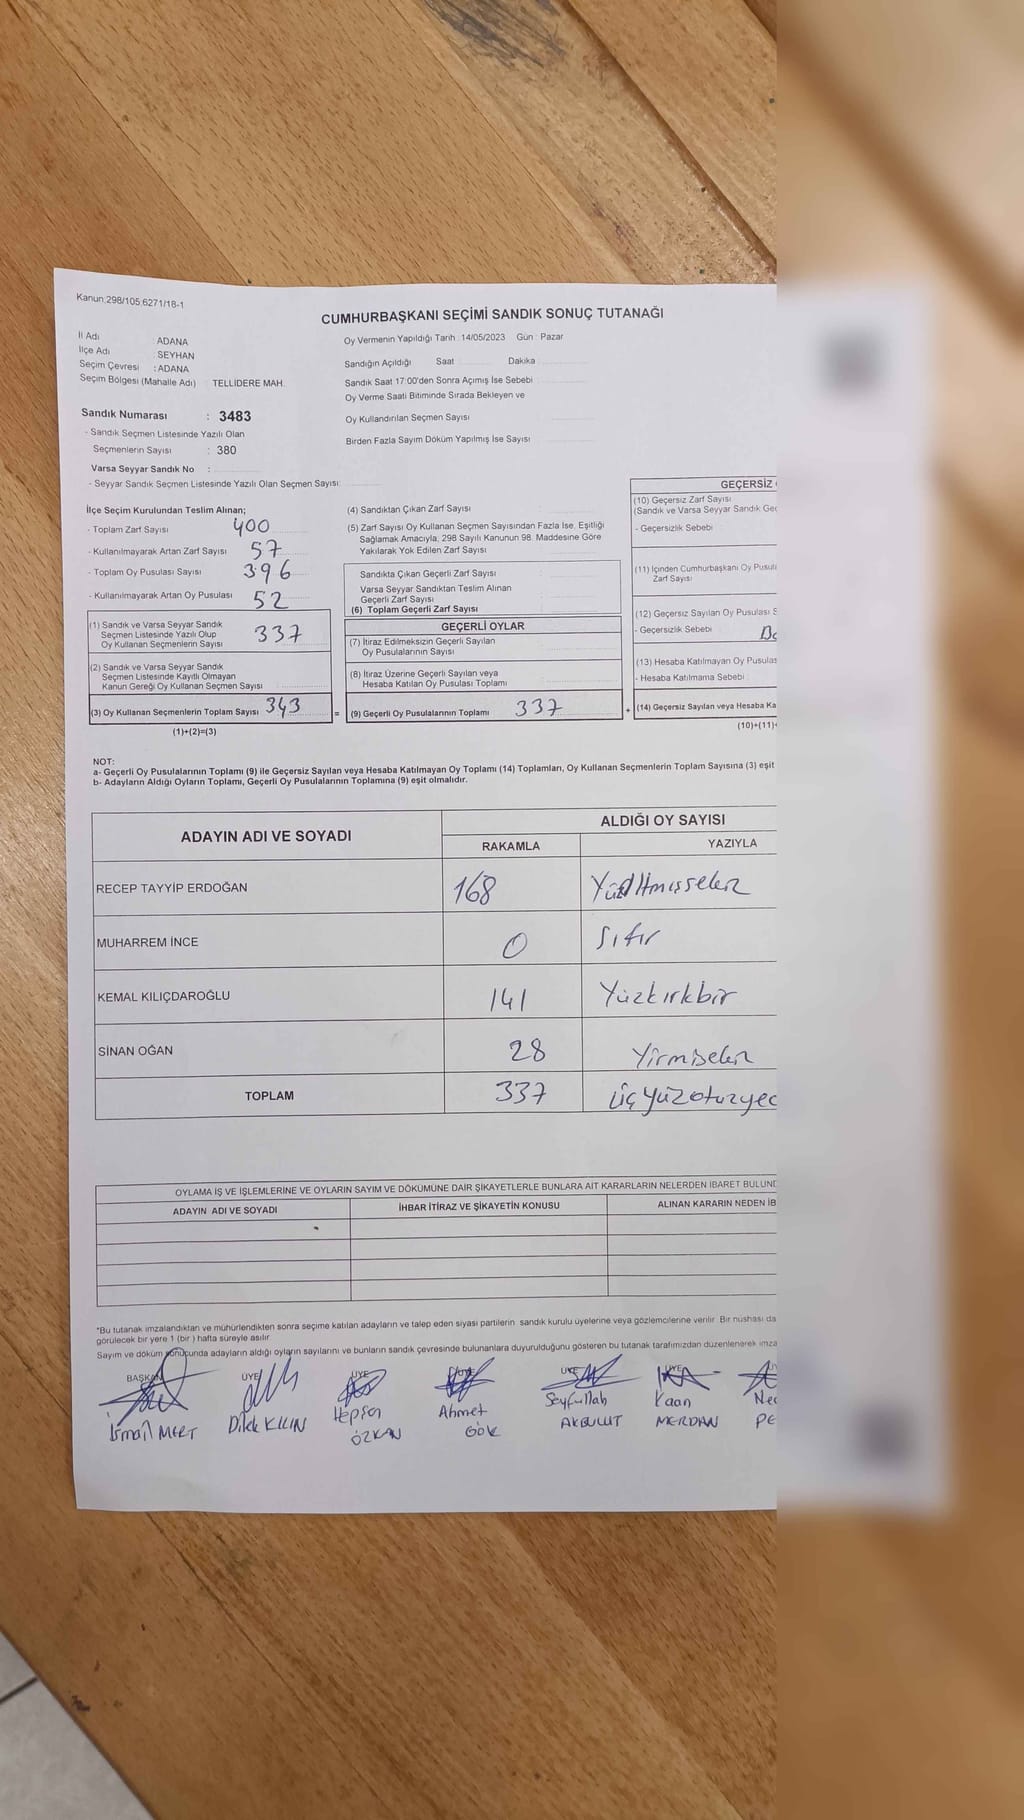 Kanun.298/105,6271/18-1
CUMHURBAŞKANI SEÇİMİ SANDIK SONUÇ TUTANAĞI
İl Adı : ADANA
İlçe Adı : SEYHAN
Seçim Çevresi : ADANA
Seçim Bölgesi (Mahalle Adı) : TELLİDERE MAH.
Sandık Numarası : 3483
- Sandık Seçmen Listesinde Yazılı Olan
Seçmenlerin Sayısı : 380
Varsa Seyyar Sandık No :
- Seyyar Sandık Seçmen Listesinde Yazılı Olan Seçmen Sayısı:
Oy Vermenin Yapıldığı Tarih : 14/05/2023 Gün : Pazar
Sandığın Açıldığı Saat Dakika
Sandık Saat 17:00'den Sonra Açımış İse Sebebi
Oy Verme Saati Bitiminde Sırada Bekleyen ve
Oy Kullandırılan Seçmen Sayısı
Birden Fazla Sayım Döküm Yapılmış İse Sayısı
İlçe Seçim Kurulundan Teslim Alınan;
- Toplam Zarf Sayısı 400
- Kullanılmayarak Artan Zarf Sayısı 57
- Toplam Oy Pusulası Sayısı 396
- Kullanılmayarak Artan Oy Pusulası 52
(1) Sandık ve Varsa Seyyar Sandık
Seçmen Listesinde Yazılı Olup
Oy Kullanan Seçmenlerin Sayısı 337
(2) Sandık ve Varsa Seyyar Sandık
Seçmen Listesinde Kayıtlı Olmayan
Kanun Gereği Oy Kullanan Seçmen Sayısı
(3) Oy Kullanan Seçmenlerin Toplam Sayısı 343
(1)+(2)=(3)
(4) Sandıktan Çıkan Zarf Sayısı
(5) Zarf Sayısı Oy Kullanan Seçmen Sayısından Fazla İse, Eşitliği
Sağlamak Amacıyla, 298 Sayılı Kanunun 98. Maddesine Göre
Yakılarak Yok Edilen Zarf Sayısı
Sandıkta Çıkan Geçerli Zarf Sayısı
Varsa Seyyar Sandıktan Teslim Alınan
Geçerli Zarf Sayısı
(6) Toplam Geçerli Zarf Sayısı
GEÇERLİ OYLAR
(7) İtiraz Edilmeksizin Geçerli Sayılan
Oy Pusulalarının Sayısı
(8) İtiraz Üzerine Geçerli Sayılan veya
Hesaba Katılan Oy Pusulası Toplamı
= (9) Geçerli Oy Pusulalarının Toplamı 337 +
GEÇERSİZ
(10) Geçersiz Zarf Sayısı
(Sandık ve Varsa Seyyar Sandık
- Geçersizlik Sebebi
(11) İçinden Cumhurbaşkanı Oy
Zarf Sayısı
(12) Geçersiz Sayılan Oy Pusulası
- Geçersizlik Sebebi
(13) Hesaba Katılmayan Oy
- Hesaba Katılmama Sebebi
(14) Geçersiz Sayılan veya Hesaba
(10)+(11)
NOT:
a- Geçerli Oy Pusulalarının Toplamı (9) ile Geçersiz Sayılan veya Hesaba Katılmayan Oy Toplamı (14) Toplamları, Oy Kullanan Seçmenlerin Toplam Sayısına (3) eşit
b- Adayların Aldığı Oyların Toplamı, Geçerli Oy Pusulalarının Toplamına (9) eşit olmalıdır.
ADAYIN ADI VE SOYADI ALDIĞI OY SAYISI
RAKAMLA YAZIYLA
RECEP TAYYİP ERDOĞAN 168
MUHARREM İNCE 0 Sıfır
KEMAL KILIÇDAROĞLU 141 Yüzkırkbir
SİNAN OĞAN 28 Yirmisekiz
TOPLAM 337 üçyüzotuzyed
OYLAMA İŞ VE İŞLEMLERİNE VE OYLARIN SAYIM VE DÖKÜMÜNE DAİR ŞİKAYETLERLE BUNLARA AİT KARARLARIN NELERDEN İBARET
ADAYIN ADI VE SOYADI İHBAR İTİRAZ VE ŞİKAYETİN KONUSU ALINAN KARARIN NEDEN
*Bu tutanak imzalandıktan ve mühürlendikten sonra seçime katılan adayların ve talep eden siyasi partilerin sandık kurulu üyelerine veya gözlemcilerine verilir. Bir nüshası da
görülecek bir yere 1 (bir) hafta süreyle asılır.
Sayım ve döküm sonucunda adayların aldığı oyların sayılarını ve bunların sandık çevresinde bulunanlara duyurulduğunu gösteren bu tutanak tarafımızdan düzenlenerek
BAŞKAN ÜYE ÜYE ÜYE ÜYE
İsmail MERT Dilek KILIN Hepsen ÖZKAN Ahmet GÖK Seyfullah AKBULUT Kaan MERDAN